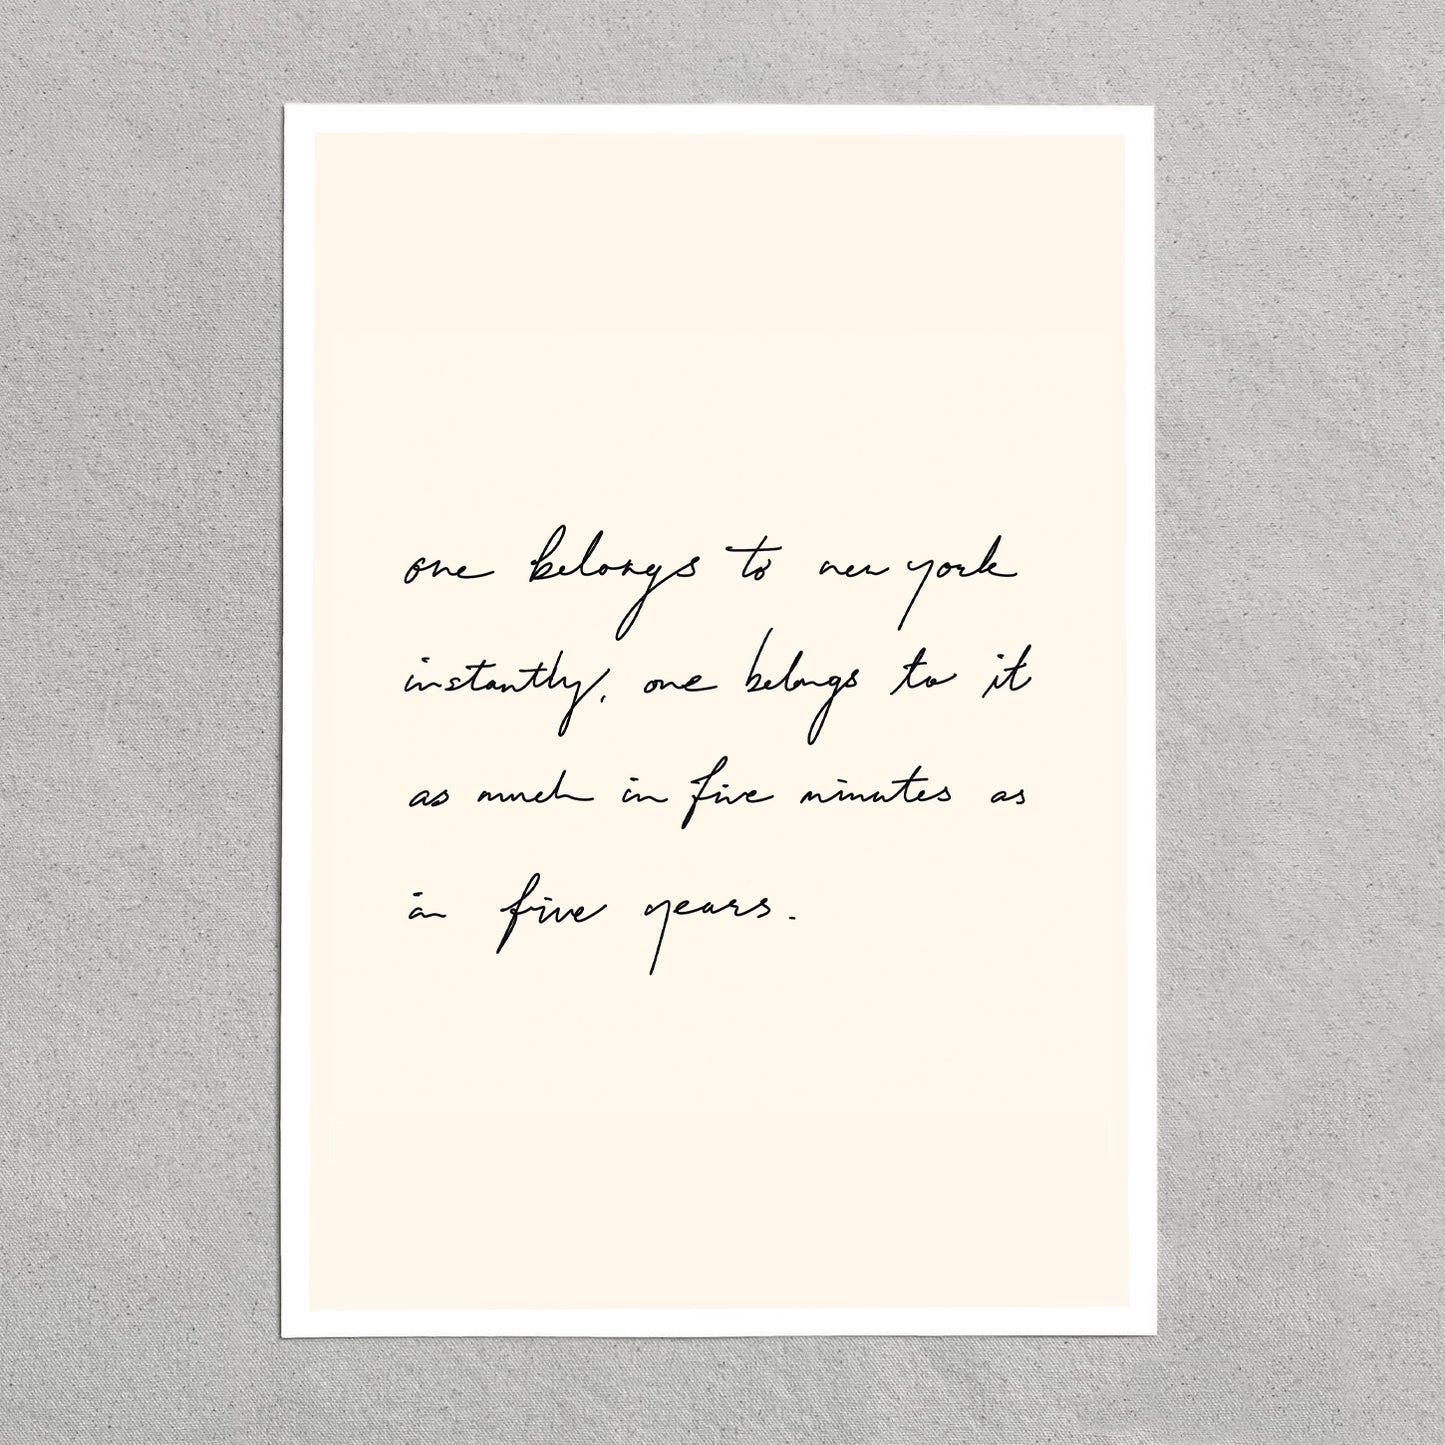 one belongs to new york
instantly, one belongs to it
as much in five minutes as
in five years.